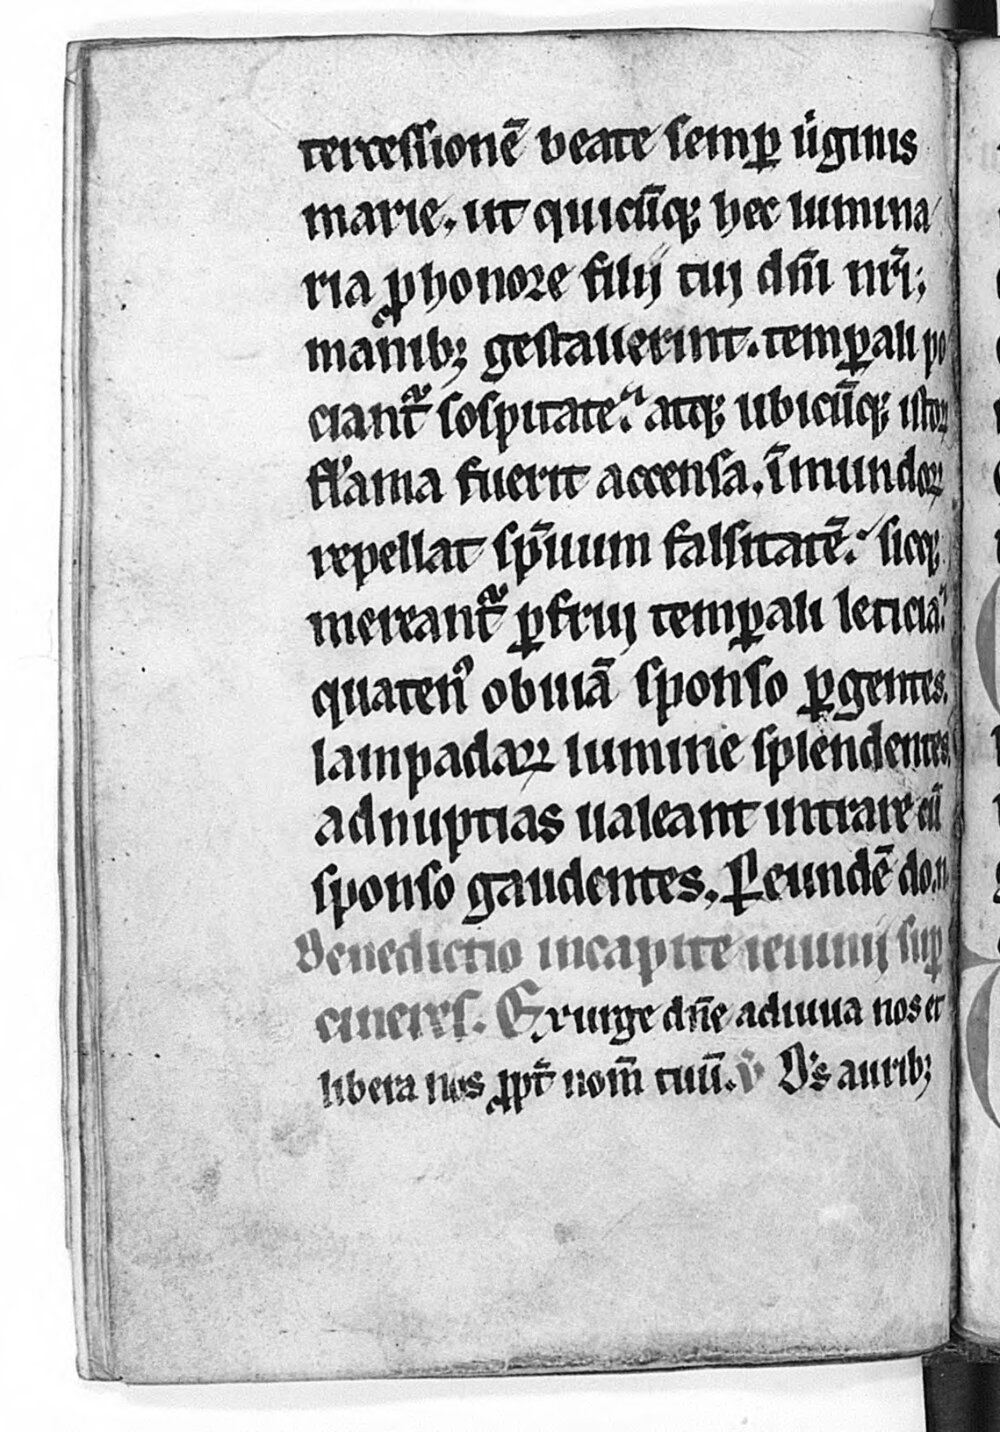 tercessionē beate semꝑ ũginis
marie. ut quicūqꝫ hec lumina
ria ꝓ honore filij tuj dñi nr̃i;
manibꝫ gestauerint. temꝑali po
ciant᷑ sospitate. atqꝫ ubicūqꝫ istoꝝ
flãma fuerit accensa. ĩmundoꝝ
repellat sp̃iuum falsitatē. sicqꝫ
mereant᷑ ꝑfruj temꝑali leticia.
quatenꝰ obuiā sponso ꝑgentes.
lampadaꝝ lumine splendentes.
ad nuptias ualeant intrare cū
sponso gaudentes. Per eundē do. n
Benedictio in capite ieiunij suꝑ
cineres. Exurge dñe adiuua nos et
libera nos ꝓpt̃ nom̃ tuū. v̄ Ds̃ auribꝫ